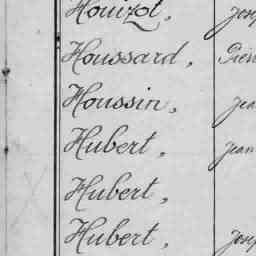 Houizot, Jose
Houssard, Pierr
Houssin, Jea
Hubert, Jean
Hubert,
Hubert, Jose